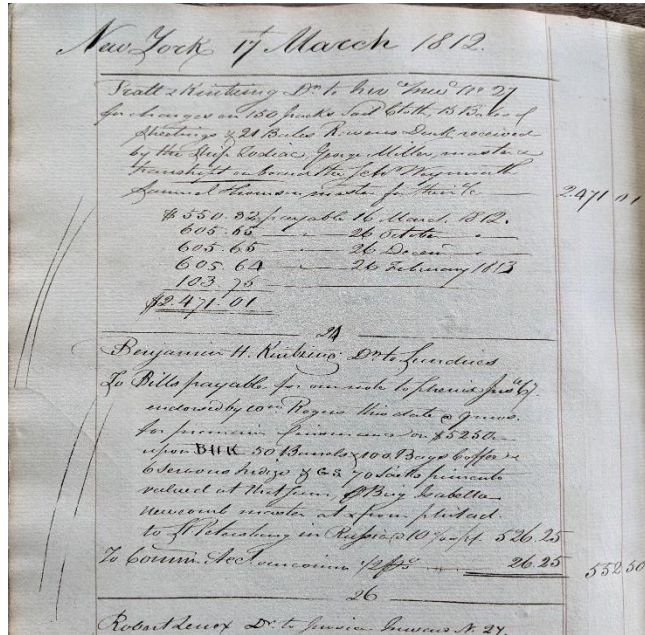 New York 17 March 1812.
Pratt & Kintzing Dr to New Inves No 27
for charges on 150 packs Sail Cloth, 15 Bales of
Sheetings & 21 Bales Ravens Duck received
by the Ship Zodiac, George Miller, master &
transhipt on board the Schr Weymouth
Samuel master for their a/c 2.471 01
$550.32 payable 16 March. 1812.
605.65 — " — 26 October "
605.65 — 26 Decem "
605.64 — 26 February 1813
103.75
$2.471.01
24
Benjamin H. Kintzing Dr to Sundries
To Bills payable for our note to Phenix Insce
endorsed by Rogers this date @
for premium Insurance on $5250
upon BHK 50 Barrels & 100 Bags Coffee &
6 Seroons Indigo & GS 70 Sacks pimento
valued at that sum, Brig Isabella
Newcomb master at & from philad
to St Petersburg in Russia @ 10 526.25
To Commn Acct our comn 1/2 26.25 552 50
26
Robert Lenox Dr to Invoice Inwards N. 27.